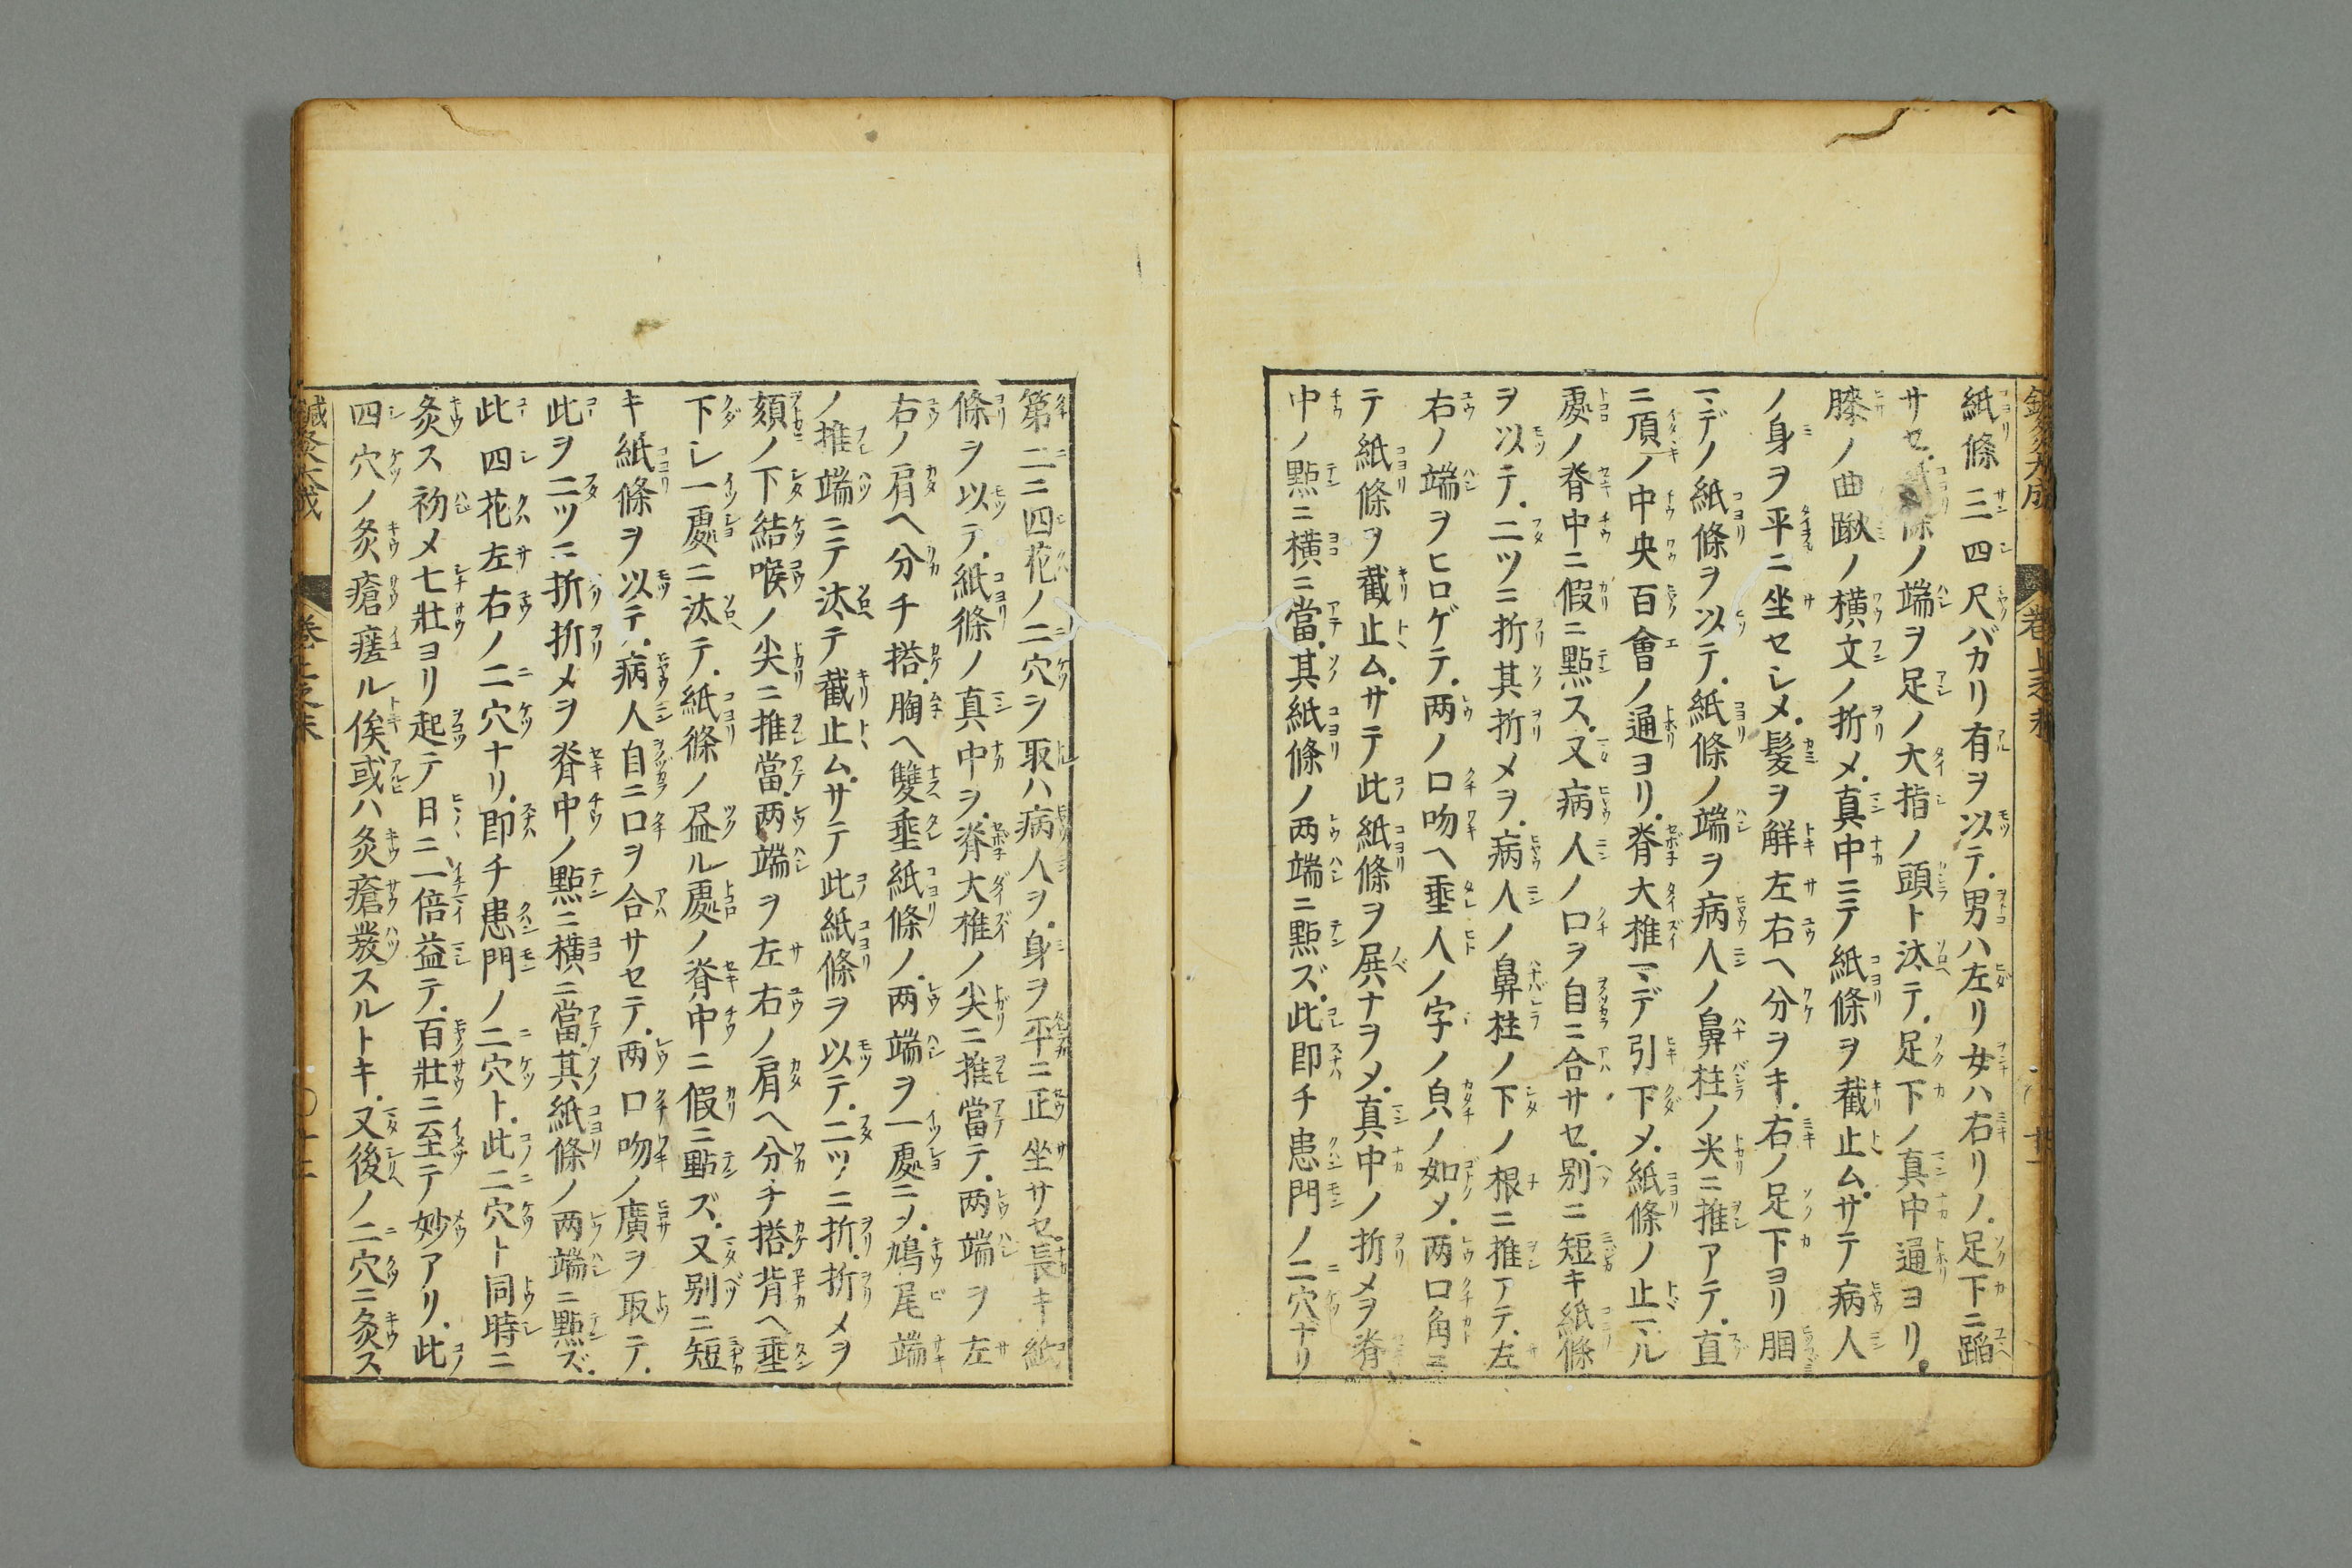 紙條三四尺バカリ有ヲ以テ男ハ左リ女ハ右リノ足下ニ蹈
サセ紙條ノ端ヲ足ノ大指ノ頭ト汰テ足下ノ真中通ヨリ
膝ノ曲䐐ノ横文ノ折メ真中ニテ紙條ヲ截止ムサテ病人
ノ身ヲ平ニ坐セシメ髪ヲ解左右ヘ分ヲキ右ノ足下ヨリ膕
マデノ紙條ヲ以テ紙條ノ端ヲ病人ノ鼻柱ノ尖ニ推アテ直
ニ頂ノ中央百會ノ通ヨリ脊大椎マデ引下メ紙條ノ止マル
處ノ脊中ニ假ニ點ス又病人ノ口ヲ自ニ合サセ別ニ短キ紙條
ヲ以テ二ツニ折其折メヲ病人ノ鼻柱ノ下ノ根ニ推アテ左
右ノ端ヲヒロゲテ两ノ口吻ヘ垂人ノ字ノ皃ノ如メ两口角ニ
テ紙條ヲ截止ムサテ此紙條ヲ展ナヲメ真中ノ折メヲ脊
中ノ點ニ横ニ當其紙條ノ两端ニ點ズ此即チ患門ノ二穴ナリ
第二ニ四花ノ二穴ヲ取ハ病人ヲ身ヲ平ニ正坐サセ長キ紙
條ヲ以テ紙條ノ真中ヲ脊大椎ノ尖ニ推當テ两端ヲ左
右ノ肩ヘ分チ搭胸ヘ雙垂紙條ノ两端ヲ一處ニメ鳩尾端
ノ推端ニテ汰テ截止ムサテ此紙條ヲ以テ二ツニ折折メヲ
頦ノ下結喉ノ尖ニ推當两端ヲ左右ノ肩ヘ分チ搭背ヘ垂
下レ一處ニ汰テ紙條ノ盡ル處ノ脊中ニ假ニ點ズ又別ニ短
キ紙條ヲ以テ病人自ニ口ヲ合サセテ两口吻ノ廣ヲ取テ
此ヲ二ツニ折折メヲ脊中ノ點ニ横ニ當其紙條ノ两端ニ點ズ
此四花左右ノ二穴ナリ即チ患門ノ二穴ト此二穴ト同時ニ
灸ス初メ七壯ヨリ起テ日ニ一倍益テ百壯ニ至テ妙アリ此
四穴ノ灸瘡瘥ル俟或ハ灸瘡發スルトキ又後ノ二穴ニ灸ス
鍼灸大成 卷上之末